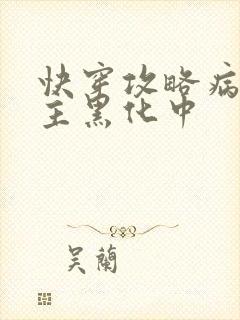 快穿攻略病
主黑化中
吴蘭